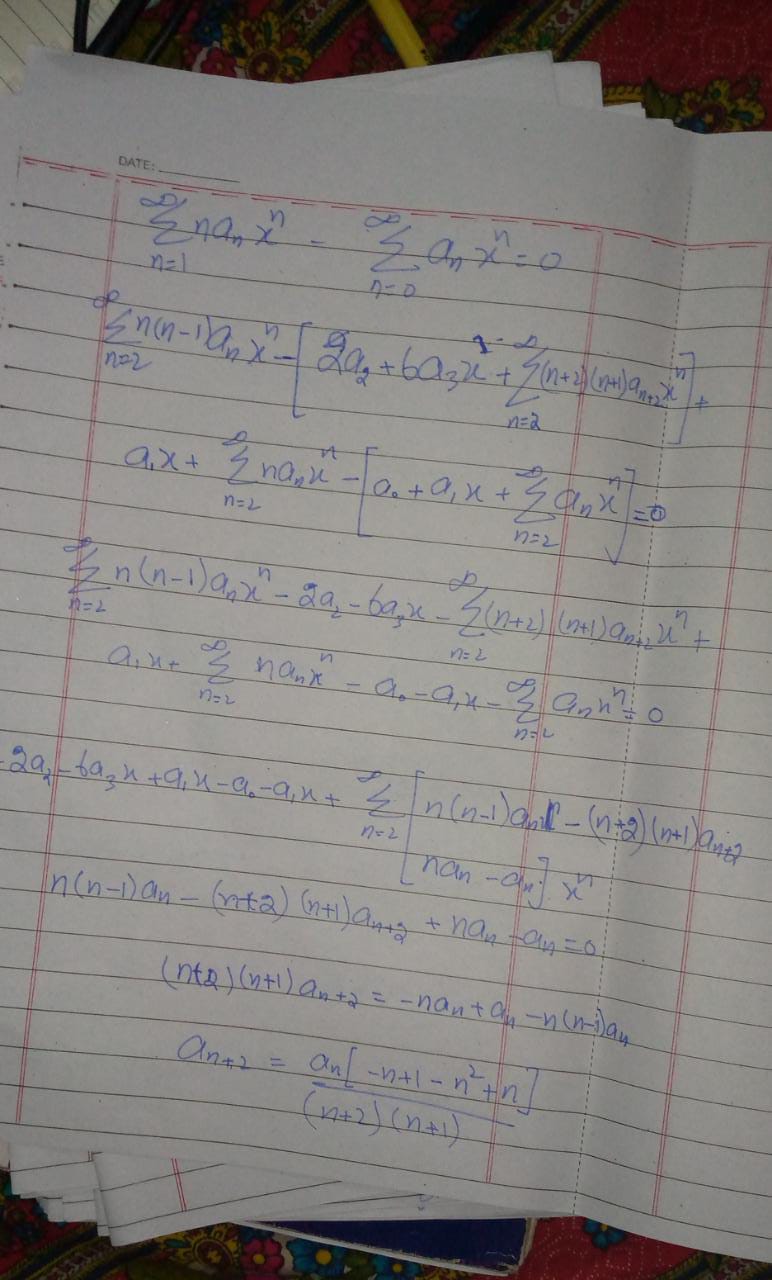 DATE:
∞∑n=1 naₙxⁿ - ∞∑n=0 aₙxⁿ = 0
∞∑n=2 n(n-1)aₙxⁿ - [2a₂ + 6a₃x + ∞∑n=2 (n+2)(n+1)aₙ₊₂xⁿ] +
a₁x + ∞∑n=2 naₙxⁿ - [a₀ + a₁x + ∞∑n=2 aₙxⁿ] = 0
∞∑n=2 n(n-1)aₙxⁿ - 2a₂ - 6a₃x - ∞∑n=2 (n+2)(n+1)aₙ₊₂xⁿ +
a₁x + ∞∑n=2 naₙxⁿ - a₀ - a₁x - ∞∑n=2 aₙxⁿ = 0
-2a₂ - 6a₃x + a₁x - a₀ - a₁x + ∞∑n=2 [n(n-1)aₙ - (n+2)(n+1)aₙ₊₂
naₙ - aₙ] xⁿ
n(n-1)aₙ - (n+2)(n+1)aₙ₊₂ + naₙ - aₙ = 0
(n+2)(n+1)aₙ₊₂ = -naₙ + aₙ - n(n-1)aₙ
aₙ₊₂ = aₙ[-n+1-n²+n]
(n+2)(n+1)